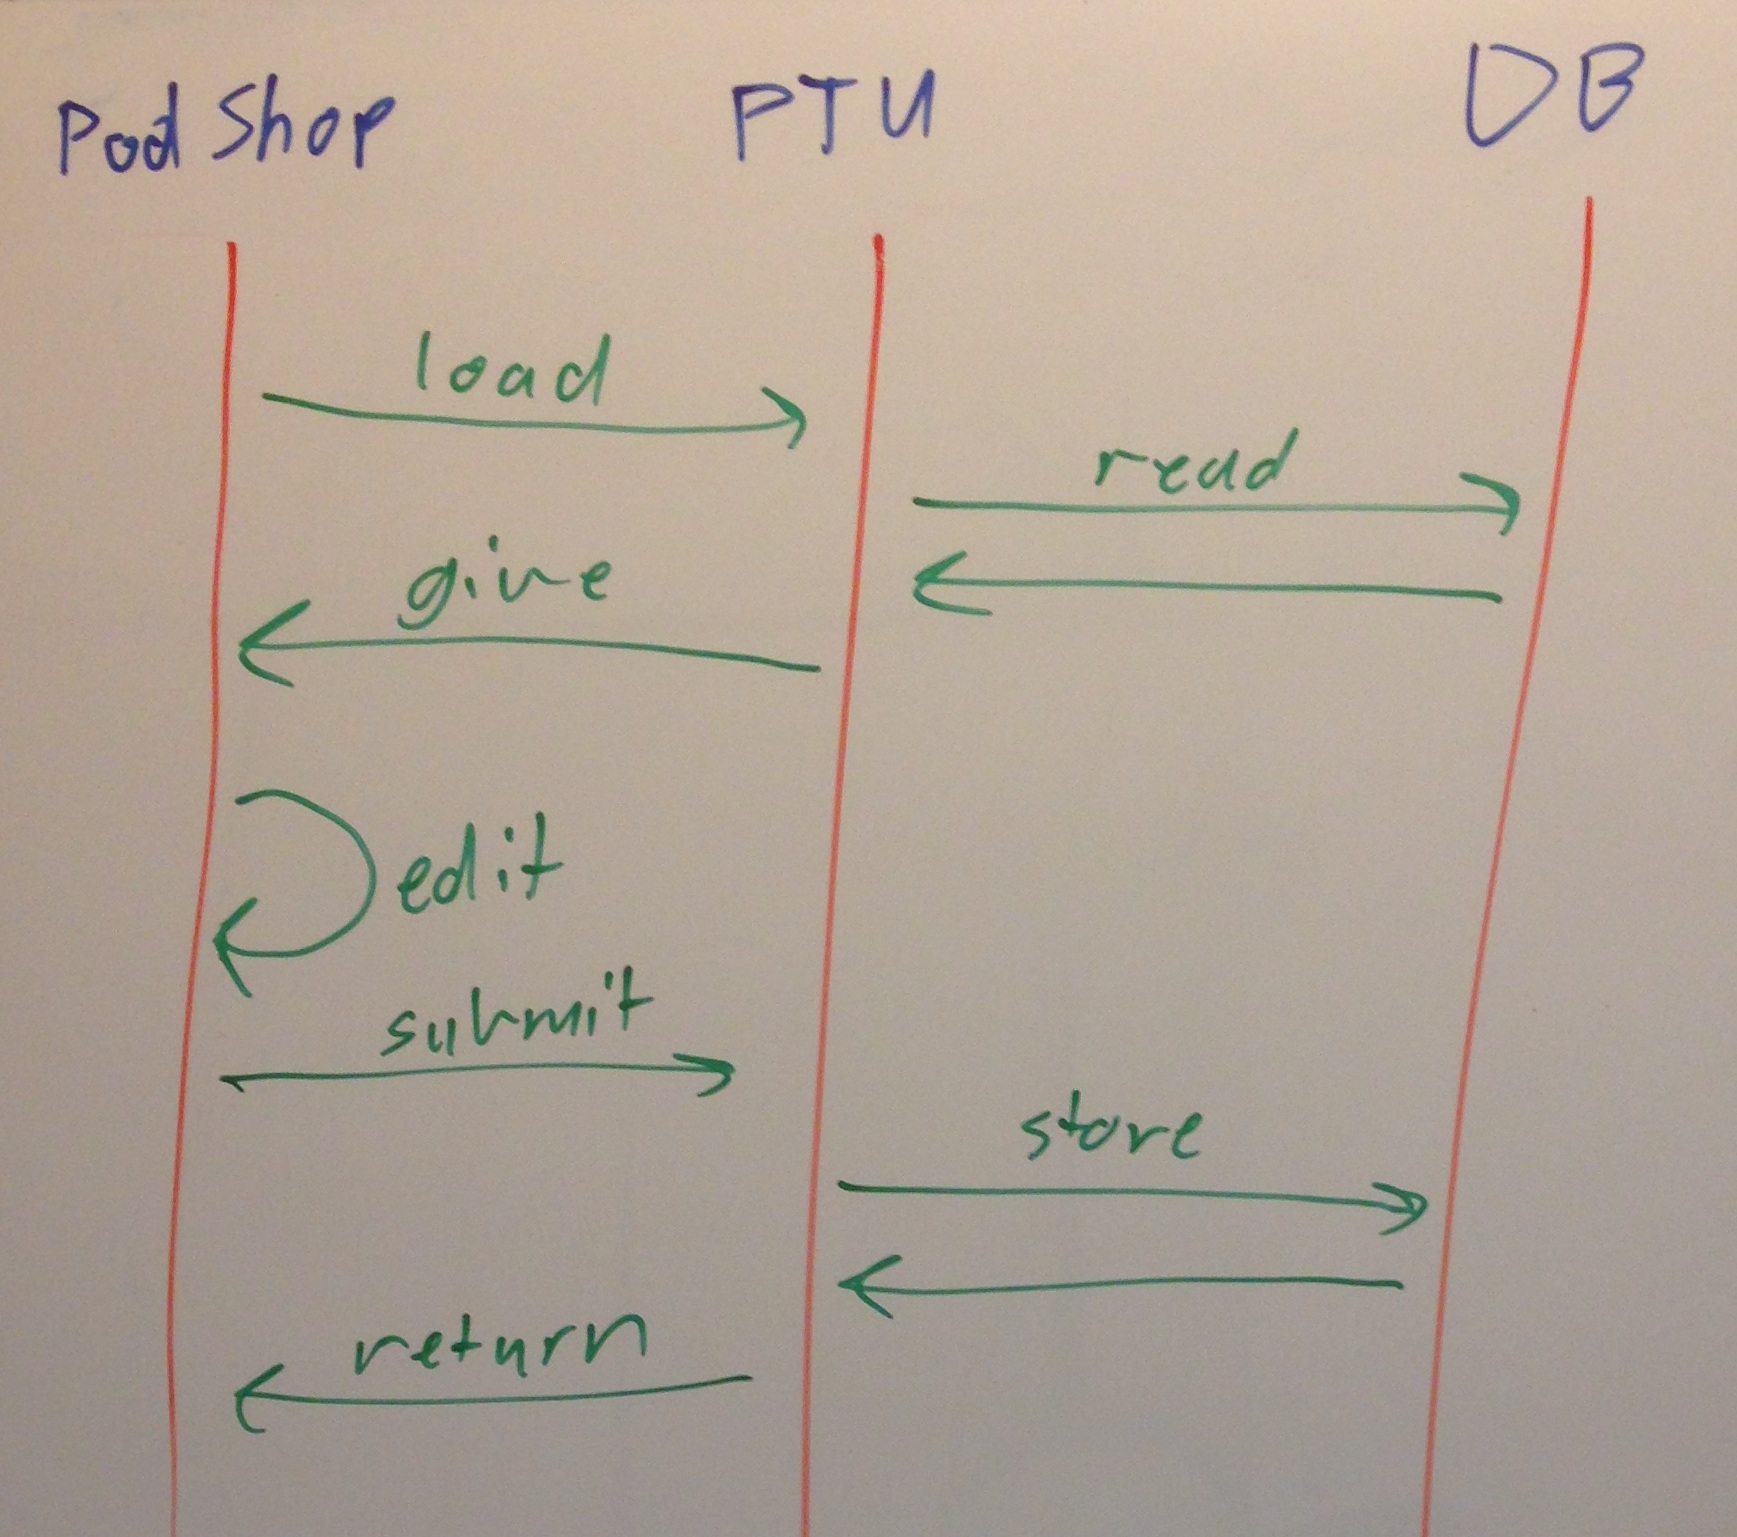 Pod Shop PTU DB
load
read
give
edit
submit
store
return